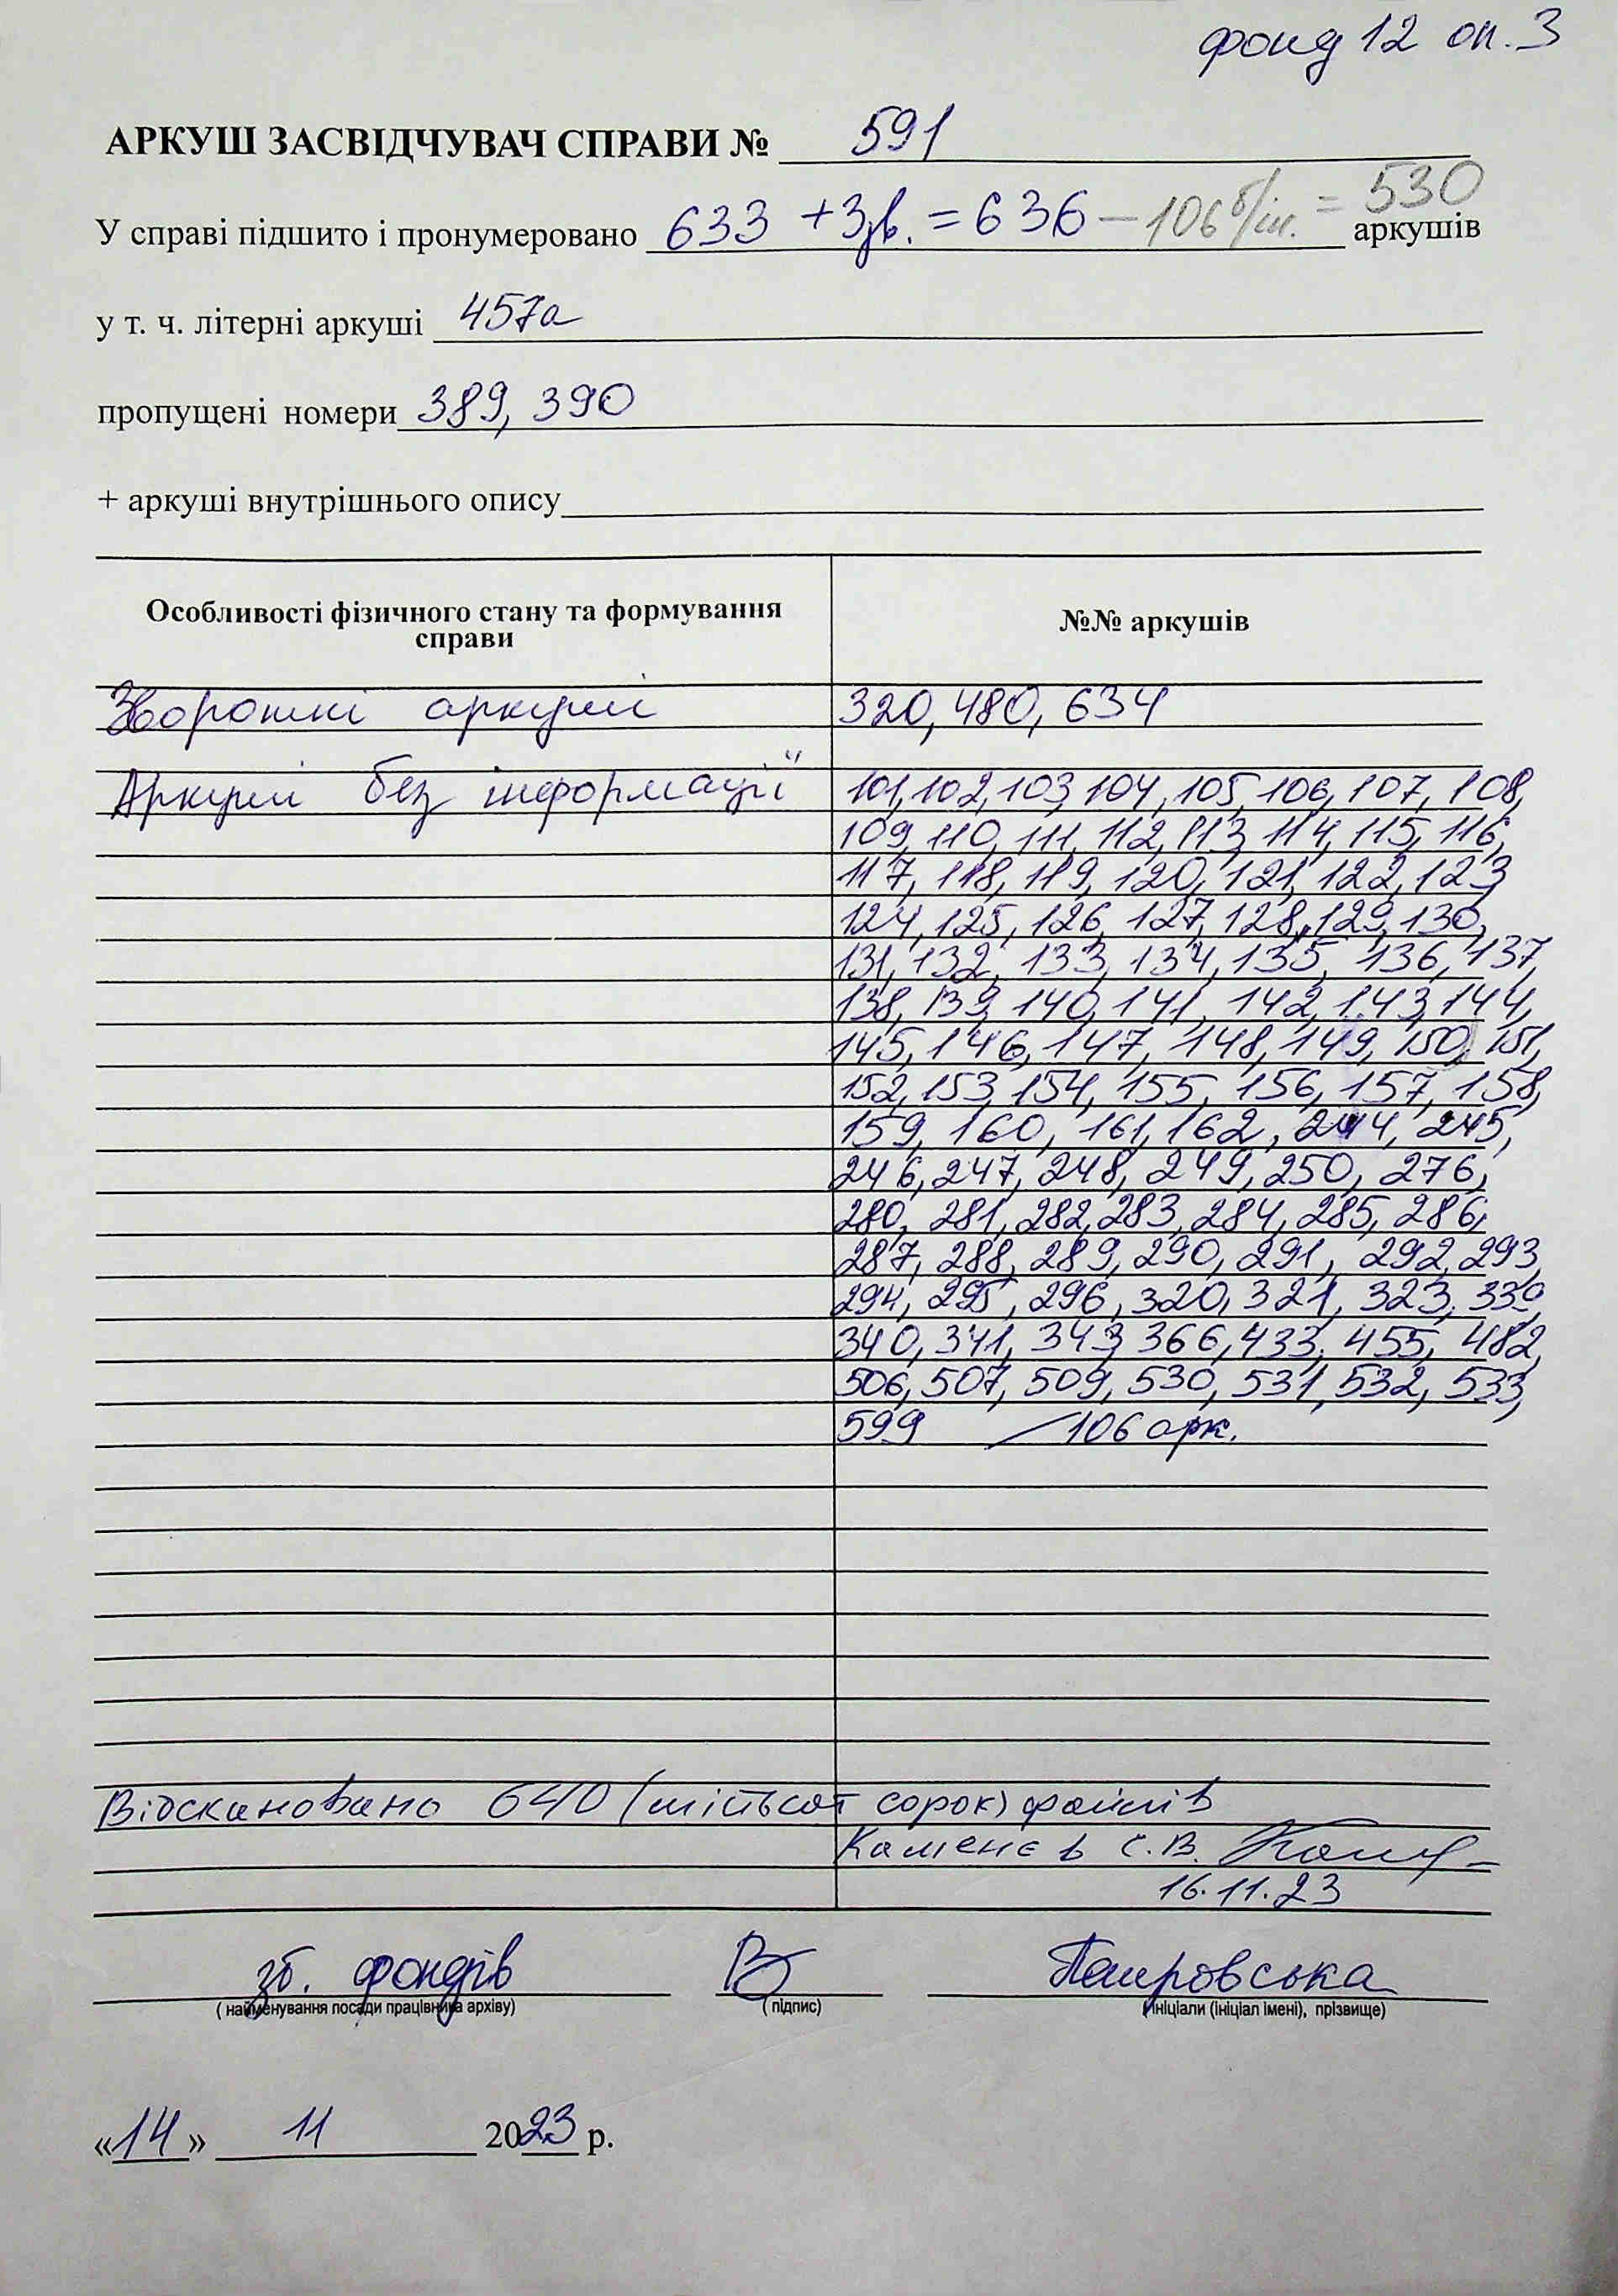 фонд 12 оп. 3
АРКУШ ЗАСВІДЧУВАЧ СПРАВИ № 591
У справі підшито і пронумеровано 633 + 3зв. = 636 – 106 б/ін. = 530 аркушів
у т. ч. літерні аркуші 457а
пропущені номери 389, 390
+ аркуші внутрішнього опису
Особливості фізичного стану та формування справи
№№ аркушів
Зворотні аркуші 320, 480, 634
Аркуші без інформації 101, 102, 103, 104, 105, 106, 107, 108,
109, 110, 111, 112, 113, 114, 115, 116,
117, 118, 119, 120, 121, 122, 123
124, 125, 126, 127, 128, 129, 130,
131, 132, 133, 134, 135, 136, 137,
138, 139, 140, 141, 142, 143, 144,
145, 146, 147, 148, 149, 150, 151,
152, 153, 154, 155, 156, 157, 158,
159, 160, 161, 162, 244, 245,
246, 247, 248, 249, 250, 276,
280, 281, 282, 283, 284, 285, 286,
287, 288, 289, 290, 291, 292, 293,
294, 295, 296, 320, 321, 323, 339,
340, 341, 343, 366, 433, 455, 482,
506, 507, 509, 530, 531, 532, 533,
599 / 106 арк.
Відскановано 640 (шістьсот сорок) файлів
Каменєв С.В.
16.11.23
зб. фондів
(найменування посади працівника архіву)
(підпис)
(ініціали (ініціал імені), прізвище)
«14» 11 2023 р.